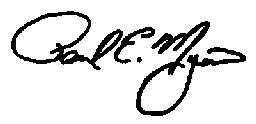 Paul E. Myers